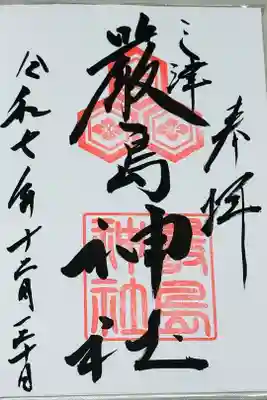 奉拝
三津
厳島神社
厳島神社
令和七年十二月三十日